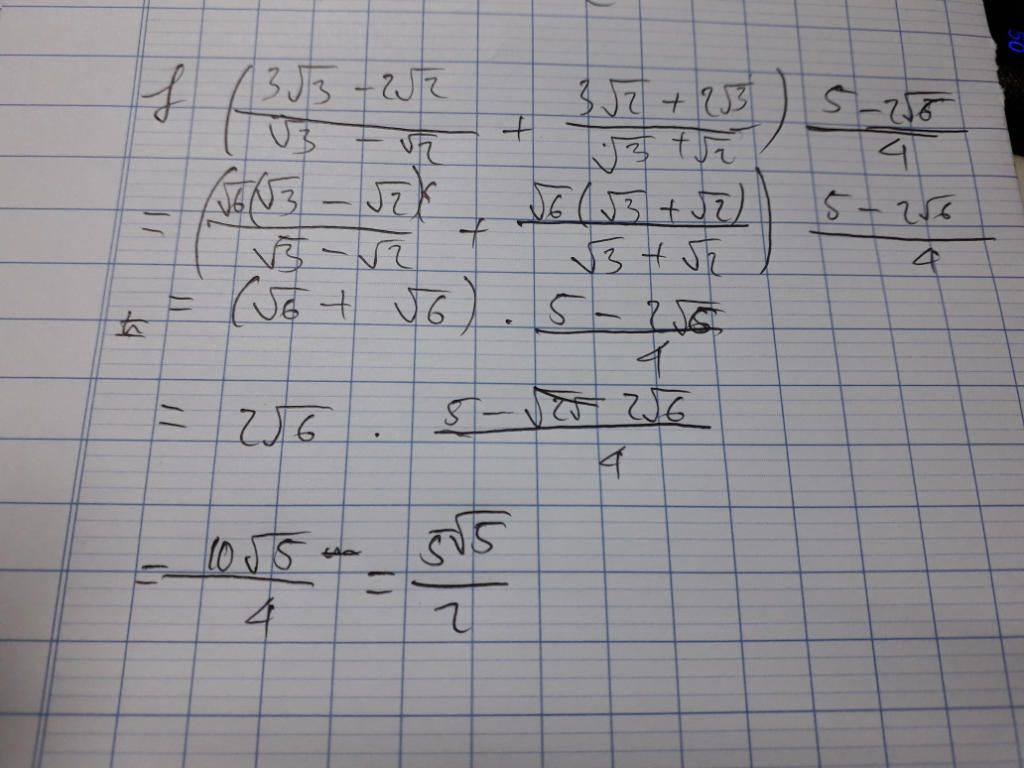 f (3√3 - 2√2 / √3 - √2 + 3√2 + 2√3 / √3 + √2) 5 - 2√6 / 4
= (√6(√3 - √2) / √3 - √2 + √6(√3 + √2) / √3 + √2) 5 - 2√6 / 4
= (√6 + √6) . 5 - 2√6 / 4
= 2√6 . 5 - 2√6 / 4
= 10√5 / 4 = 5√5 / 2